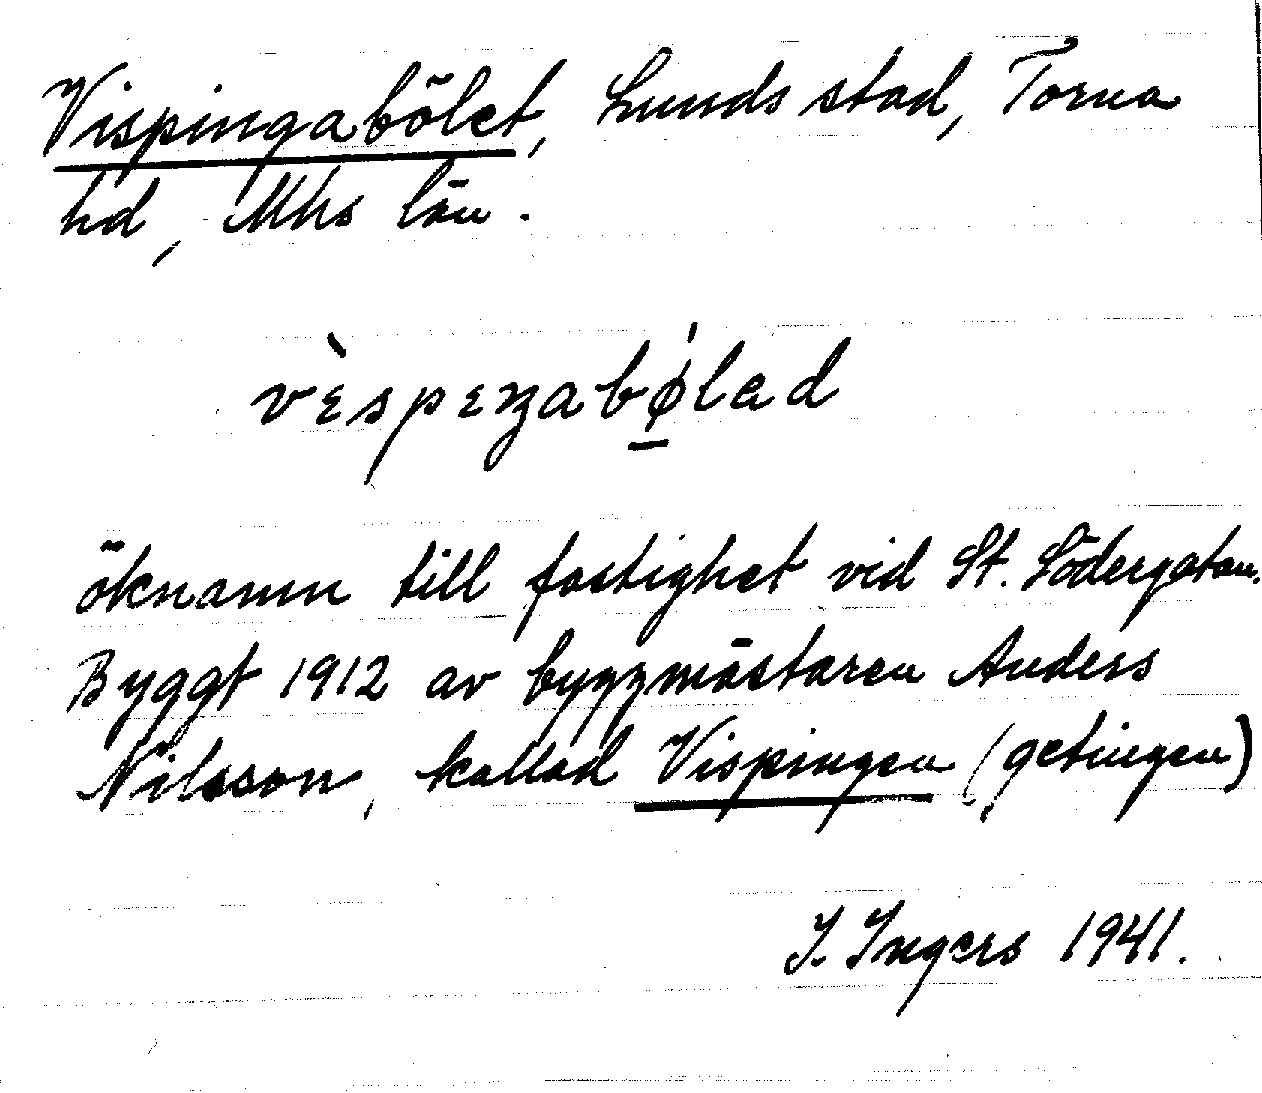 Vispingabölet, Lunds stad, Torna
hd, Mhs län.
vèspeŋabǿ̱lad
öknamn till fastighet vid St. Södergatan.
Byggt 1912 av byggmästaren Anders
Nilsson, kallad Vispingen (getingen)
I. Ingers 1941.